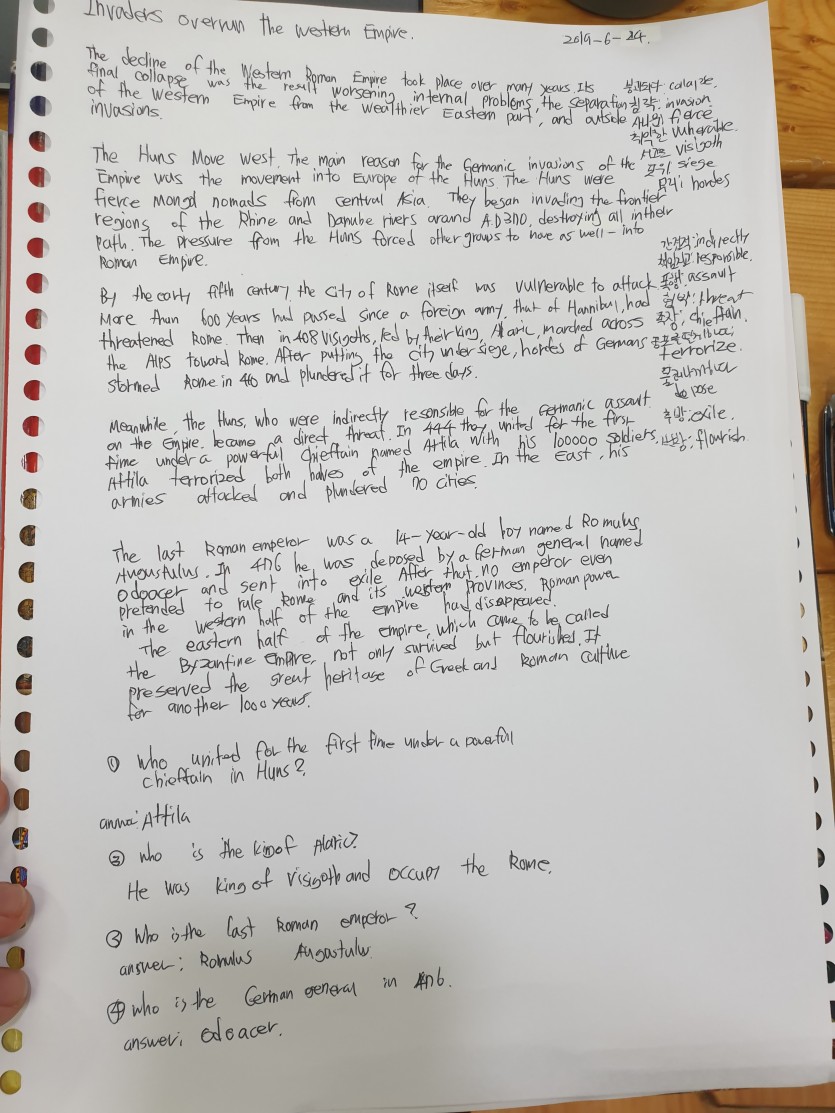 Invaders overrun the western Empire.
2019-6-24.
The decline of the Western Roman Empire took place over many years. Its
final collapse was the result worsening internal problems, the separation
of the Western Empire from the wealthier Eastern part, and outside
invasions.
The Huns Move west. The main reason for the Germanic invasions of the
Empire was the movement into Europe of the Huns. The Huns were
fierce Mongol nomads from central Asia. They began invading the frontier
regions of the Rhine and Danube rivers around A.D 370, destroying all in their
Path. The pressure from the Huns forced other groups to move as well - into
Roman Empire.
By the early fifth century, the city of Rome itself was vulnerable to attack
More than 600 years had passed since a foreign army, that of Hannibal, had
threatened Rome. Then in 408 Visigoths, led by their king, Alaric, marched across
the Alps toward Rome. After putting the city under siege, hordes of Germans
stormed Rome in 410 and plundered it for three days.
Meanwhile, the Huns, who were indirectly resonsible for the Germanic assault
on the Empire. became a direct threat. In 444 they united for the first
time under a powerful chieftain named Attila with his 100000 soldiers,
Attila terrorized both halves of the empire. In the East, his
armies attacked and plundered 70 cities.
The last Roman emperor was a 14-year-old boy named Romulus
Augustulus. In 476 he was deposed by a German general named
Odoacer and sent into exile After that, no emperor even
pretended to rule Rome and its western provinces. Roman power
in the western half of the empire had disappeared.
The eastern half of the empire, which came to be called
the Byzantine empire, not only survived but flourished. It
preserved the great heritage of Greek and Roman culture
for another 1000 years.
붕괴되다 collapze.
침략: invasion
사나운 fierce
취약한 vulnerable.
서고트 visigoth
포위 siege
무리 hordes
간접적: indirectly
책임지고: responsible.
폭행: assault
협박: threat
족장: chieftain.
terrorize.
물러나게하다
depose
추방: exile.
번창: flourish
① who united for the first time under a powerfull
chieftain in Huns?
Attila
② who is the king of Alaric?
He was king of Visigoth and occupy the Rome.
③ Who is the last Roman emperor?
answer: Romulus Augustulus.
④ who is the German general in 476.
answer: odoacer.